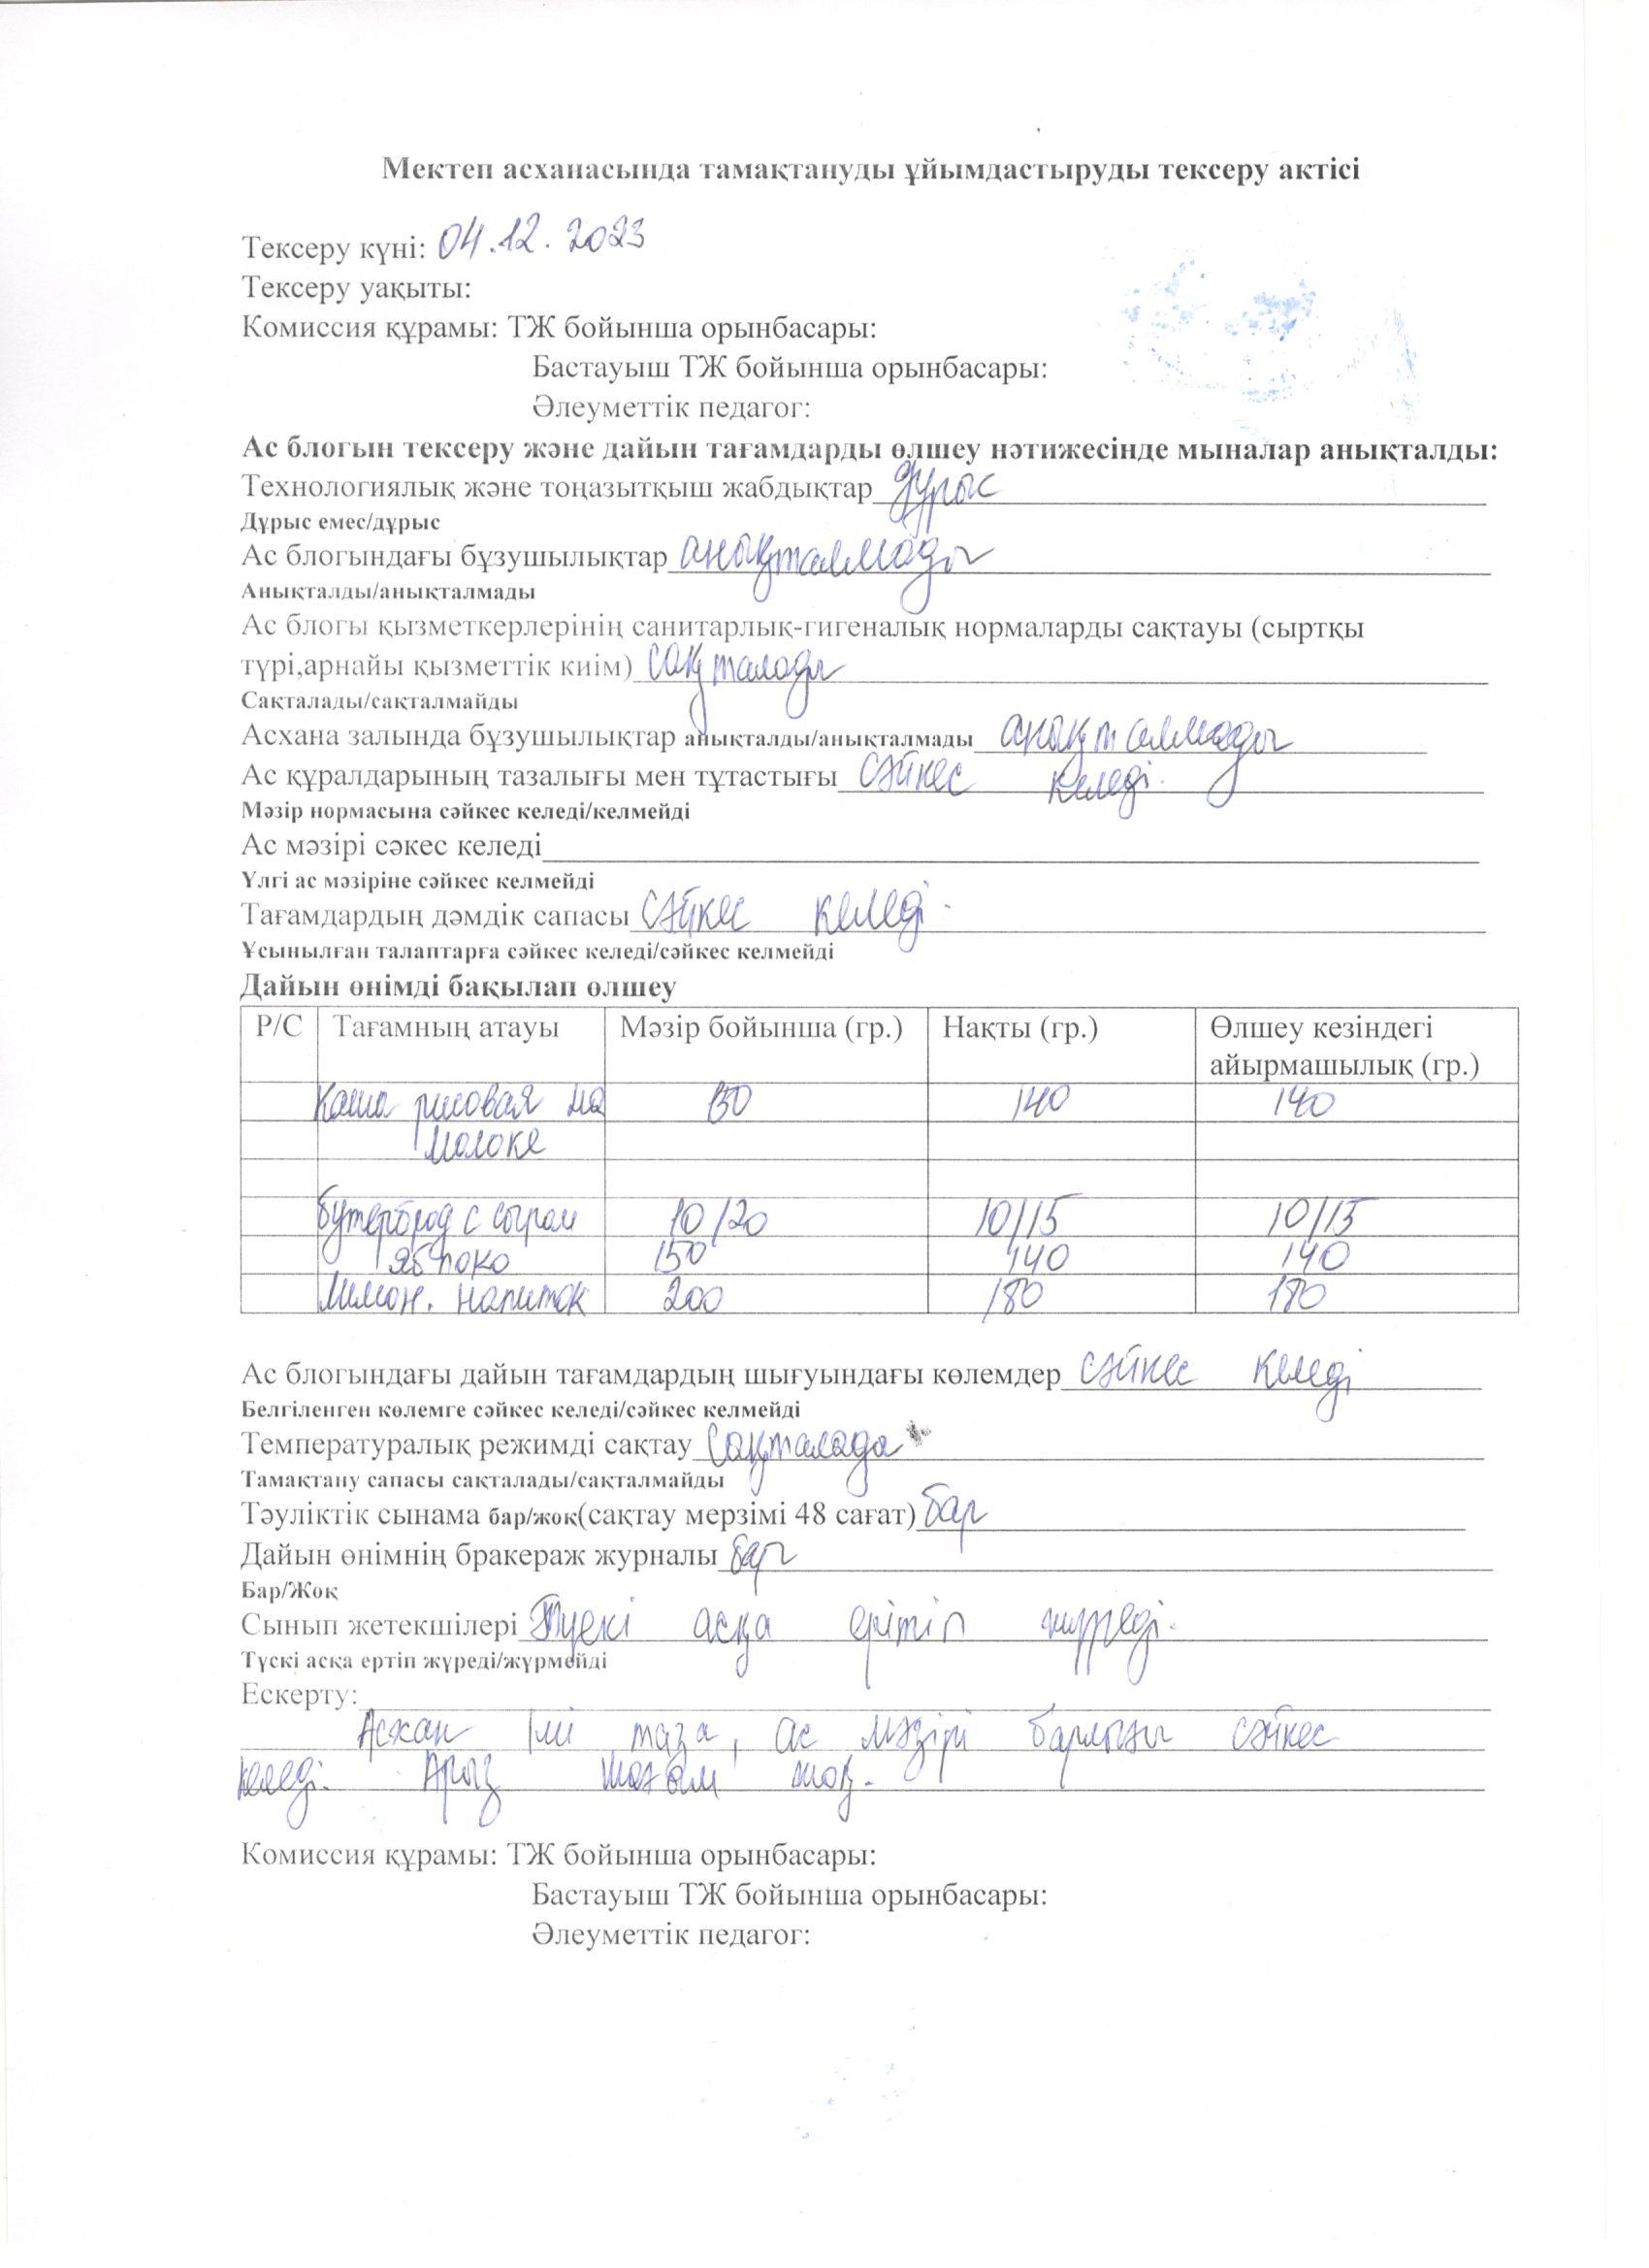 Мектеп асханасында тамақтануды ұйымдастыруды тексеру актісі
Тексеру күні: 04.12.2023
Тексеру уақыты:
Комиссия құрамы: ТЖ бойынша орынбасары:
Бастауыш ТЖ бойынша орынбасары:
Әлеуметтік педагог:
Ас блогын тексеру және дайын тағамдарды өлшеу нәтижесінде мыналар анықталды:
Технологиялық және тоңазытқыш жабдықтар дұрыс
Дұрыс емес/дұрыс
Ас блогындағы бұзушылықтар анықталмады
Анықталды/анықталмады
Ас блогы қызметкерлерінің санитарлық-гигеналық нормаларды сақтауы (сыртқы
түрі,арнайы қызметтік киім) сақталады
Сақталады/сақталмайды
Асхана залында бұзушылықтар анықталды/анықталмады анықталмады
Ас құралдарының тазалығы мен тұтастығы сәйкес келеді.
Мәзір нормасына сәйкес келеді/келмейді
Ас мәзірі сәкес келеді
Үлгі ас мәзіріне сәйкес келмейді
Тағамдардың дәмдік сапасы сәйкес келеді.
Ұсынылған талаптарға сәйкес келеді/сәйкес келмейді
Дайын өнімді бақылап өлшеу
Р/С Тағамның атауы Мәзір бойынша (гр.) Нақты (гр.) Өлшеу кезіндегі
айырмашылық (гр.)
Каша рисовая на 150 140 140
молоке
бутерброд с сыром 10/20 10/15 10/15
яблоко 150 140 140
Лимон. напиток 200 180 180
Ас блогындағы дайын тағамдардың шығуындағы көлемдер сәйкес келеді
Белгіленген көлемге сәйкес келеді/сәйкес келмейді
Температуралық режимді сақтау сақталада
Тамақтану сапасы сақталады/сақталмайды
Тәуліктік сынама бар/жоқ(сақтау мерзімі 48 сағат) бар
Дайын өнімнің бракераж журналы бар
Бар/Жоқ
Сынып жетекшілері Түскі асқа ертіп жүреді.
Түскі асқа ертіп жүреді/жүрмейді
Ескерту:
Асхан іші таза, ас мәзірі барлығы сәйкес
келеді. Арыз шағым жоқ.
Комиссия құрамы: ТЖ бойынша орынбасары:
Бастауыш ТЖ бойынша орынбасары:
Әлеуметтік педагог: